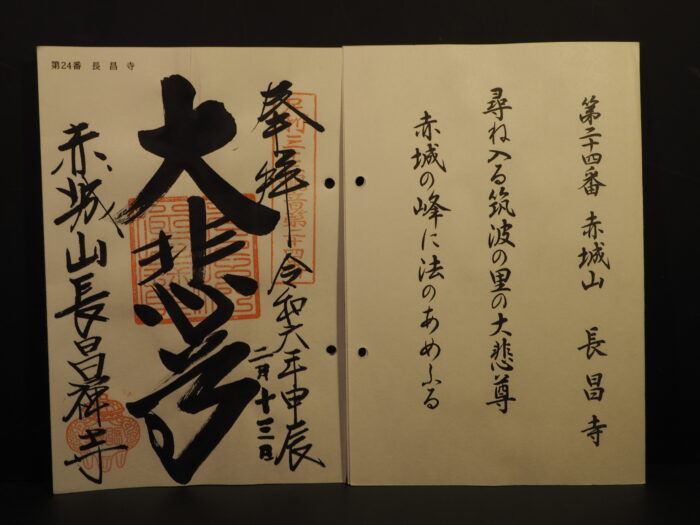 第二十四番 赤城山 長昌寺
尋ね入る筑波の里の大悲尊
赤城の峰に法のあめふる
第24番 長昌寺
奉拝 令和六年甲辰
二月
大悲尊
赤城山長昌禅寺